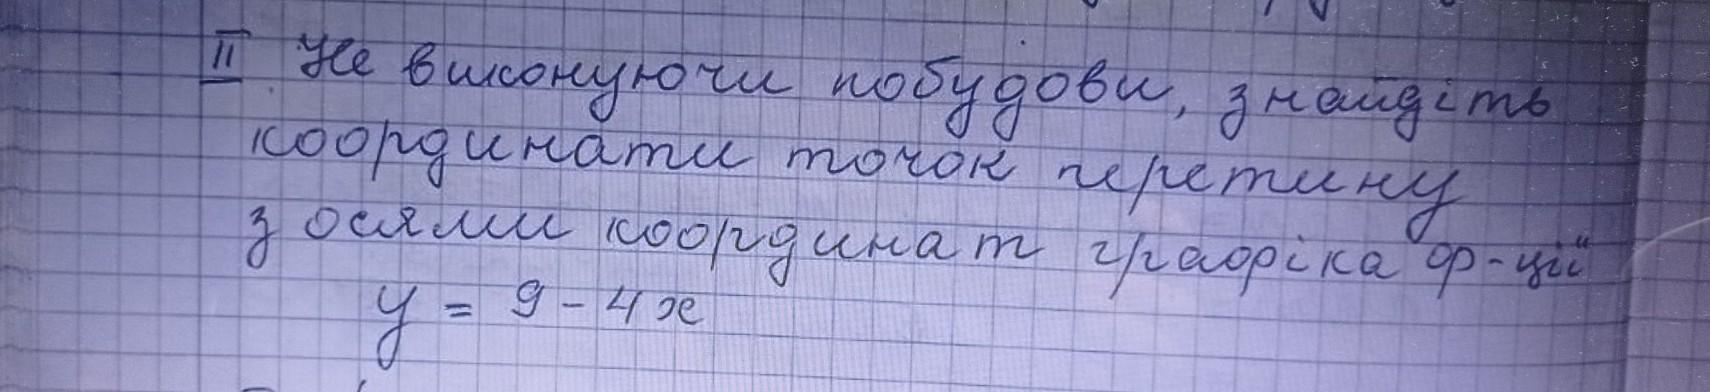 II Не виконуючи побудови, знайдіть
координати точок перетину
з осями координат графіка ф-цій
y = 9 - 4x